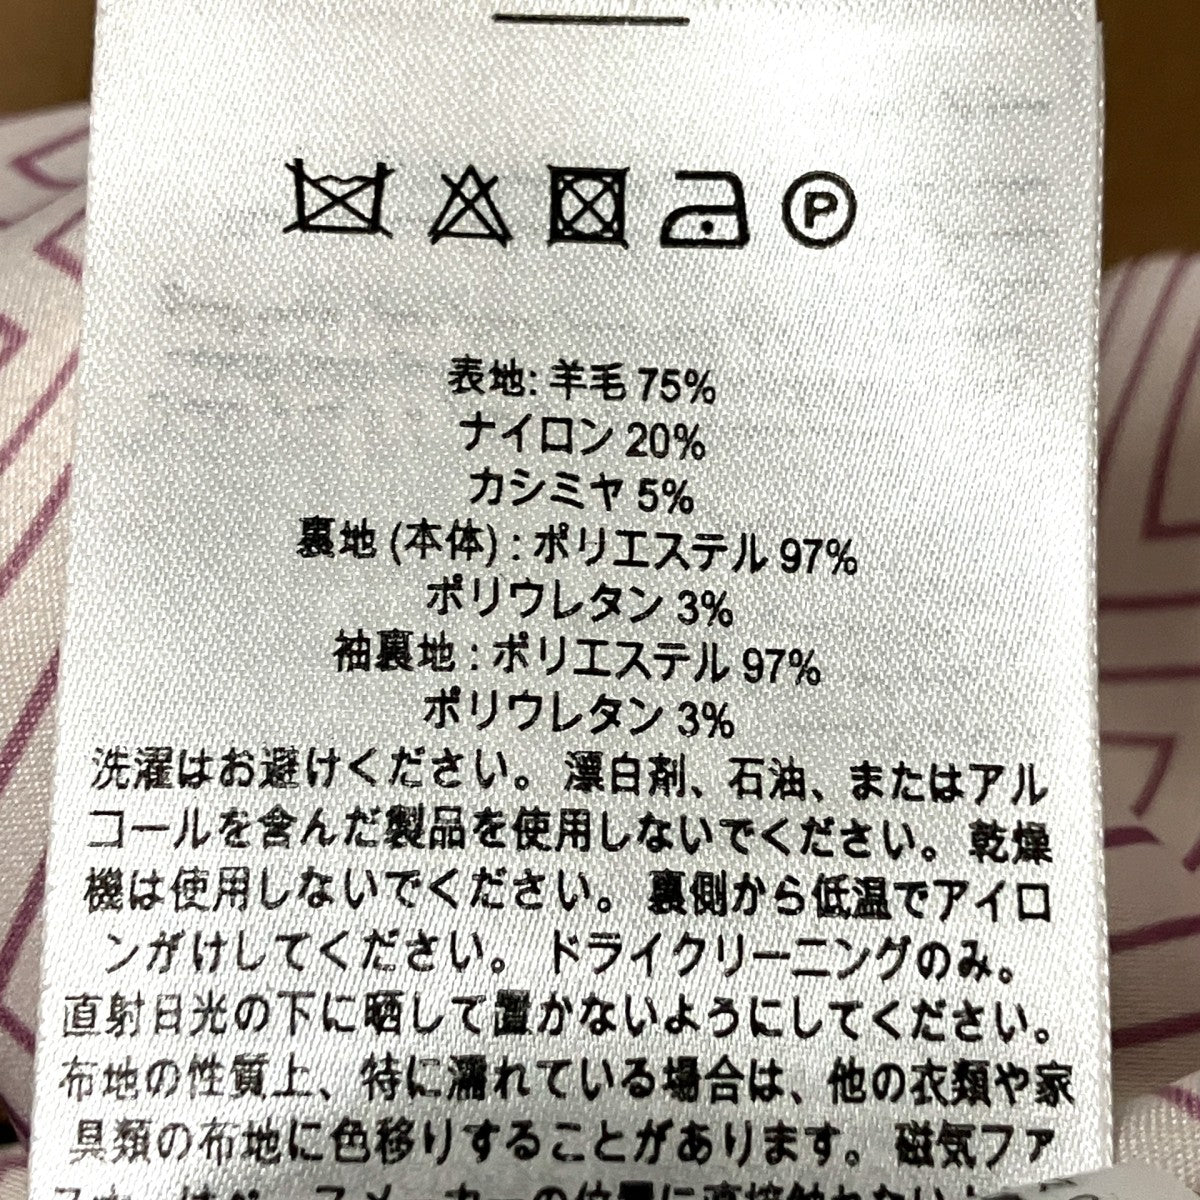 P
表地: 羊毛 75%
ナイロン 20%
カシミヤ 5%
裏地 (本体) : ポリエステル 97%
ポリウレタン 3%
袖裏地 : ポリエステル 97%
ポリウレタン 3%
洗濯はお避けください。 漂白剤、石油、またはアル
コールを含んだ製品を使用しないでください。乾燥
機は使用しないでください。 裏側から低温でアイロ
ンがけしてください。 ドライクリーニングのみ。
直射日光の下に晒して置かないようにしてください。
布地の性質上、特に濡れている場合は、他の衣類や家
具類の布地に色移りすることがあります。磁気ファ